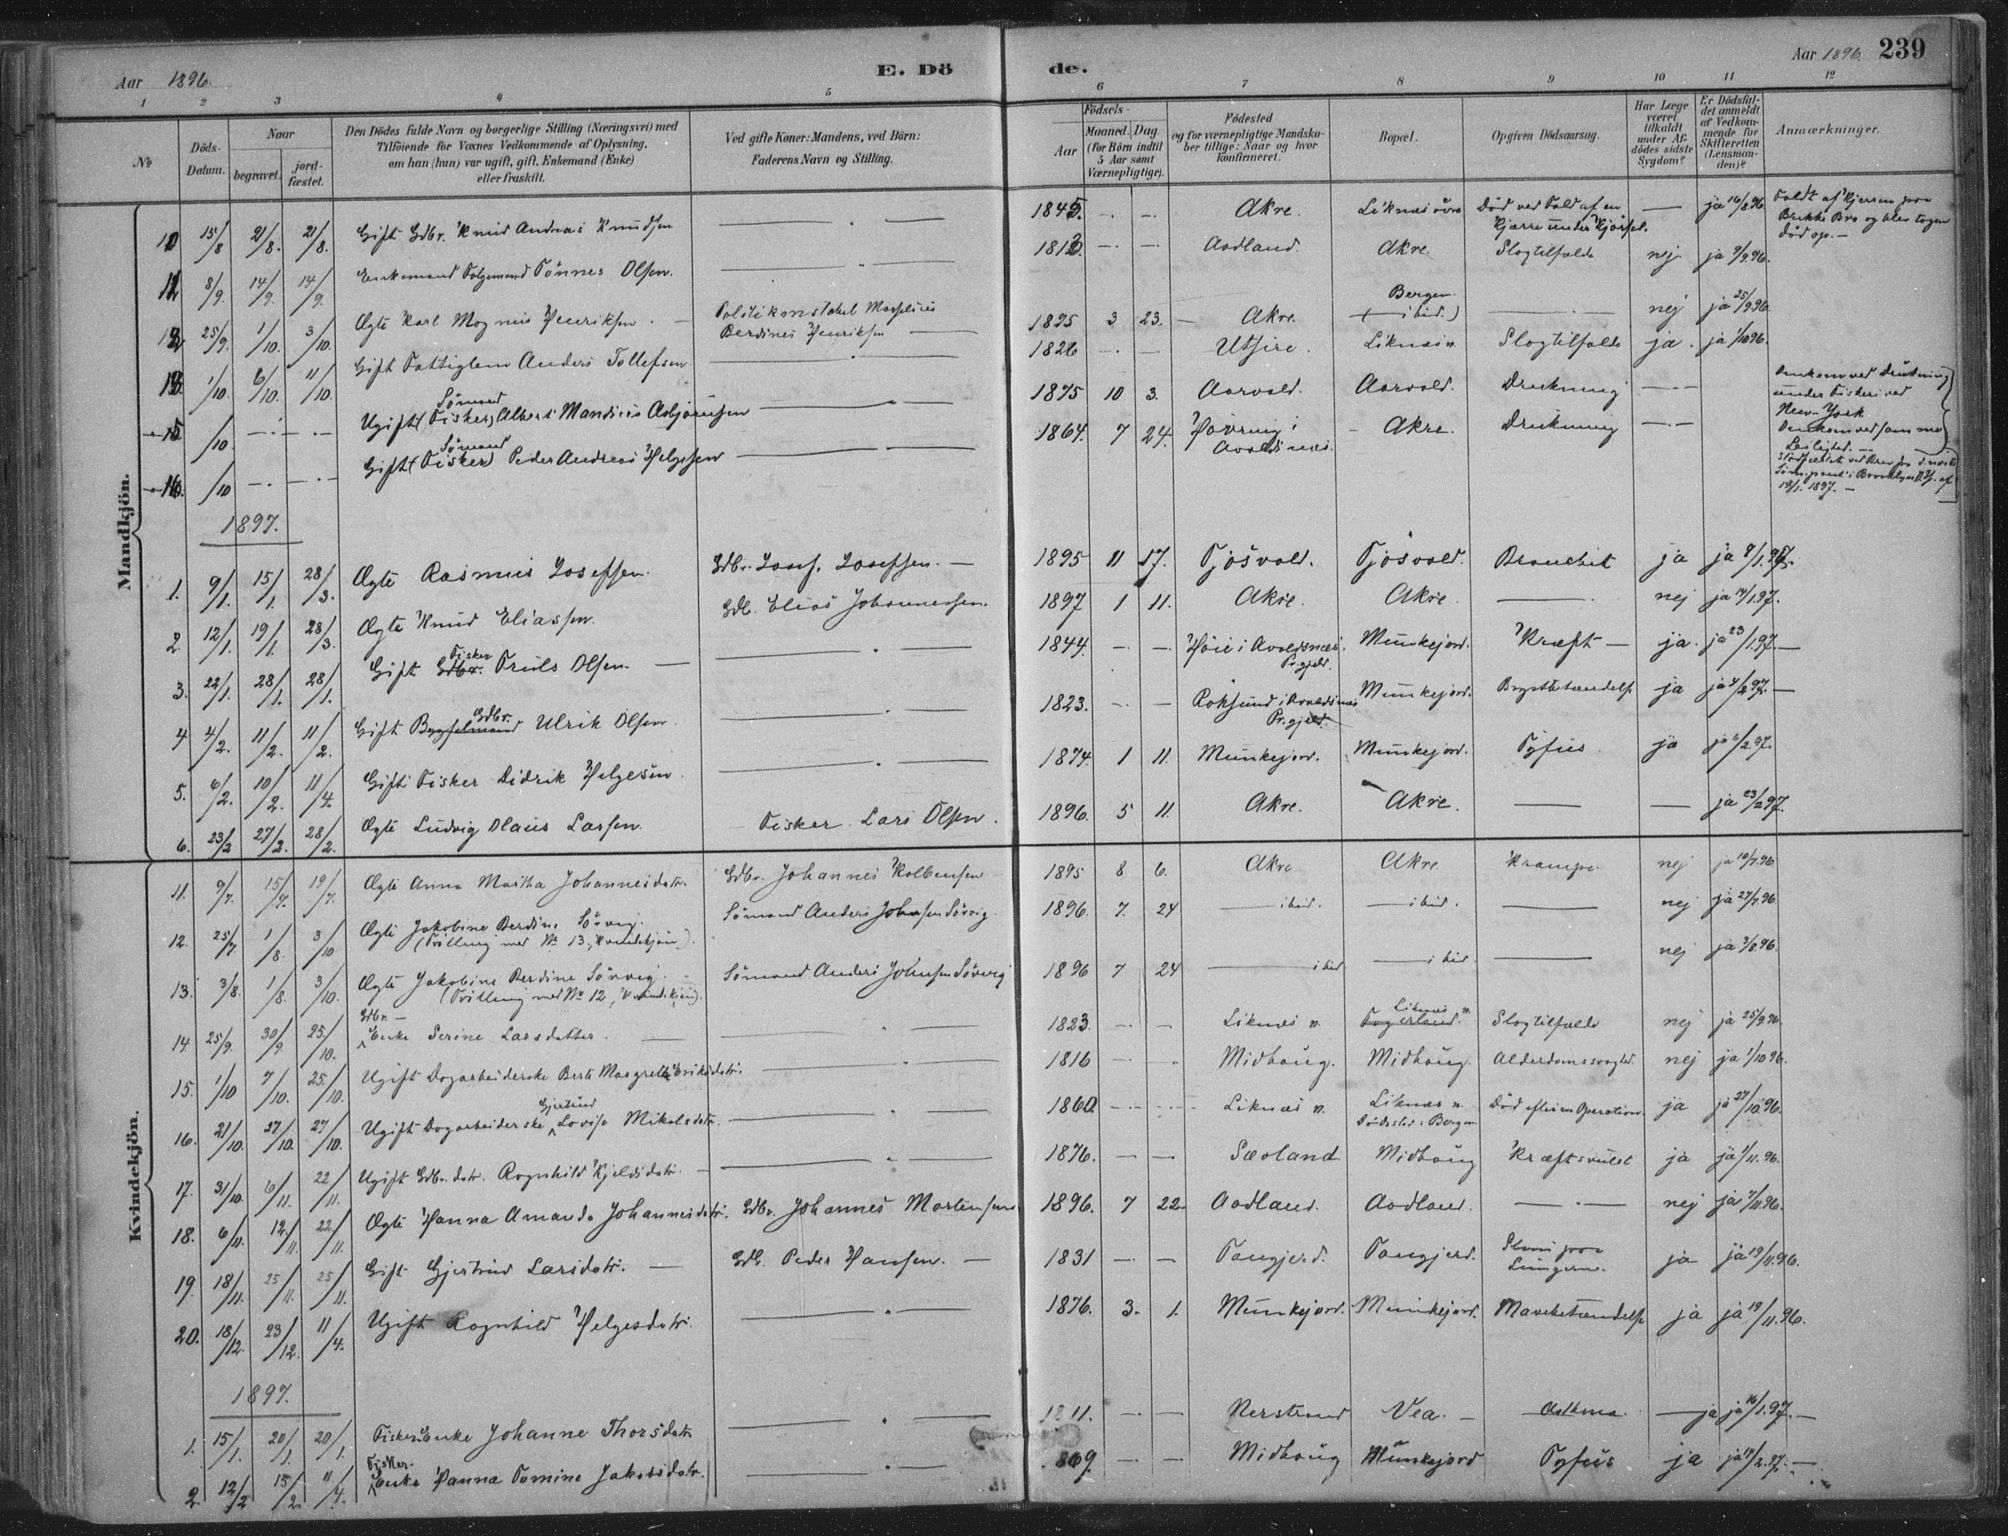 Aar 1896.
E. Dö
de.
Aar 1896. 239
1 2 3 4 5 6 7 8 9 10 11 12
No
Döds-Datum.
Naar
begravet.
jord-fæstet.
Den Dödes fulde Navn og borgerlige Stilling (Næringsvei) med
Tilföiende for Voxnes Vedkommende af Oplysning,
om han (hun) var ugift, gift, Enkemand (Enke)
eller fraskilt.
Ved gifte Koner: Mandens, ved Börn:
Faderens Navn og Stilling.
Födsels-
Aar
Maaned. Dag.
(for Börn indtil
5 Aar samt
Værnepligtige).
Födested
og for værnepligtige Mandska-
ber tillige: Naar og hvor
konfirmeret.
Bopæl.
Opgiven Dödsaarsag.
Har Læge
været
tilkaldt
under Af-
dödes sidste
Sygdom?
Er Dödsfal-
det anmeldt
af Vedkom-
mende for
Skifteretten
(Lensman-
den)?
Anmærkninger.
Mandkjön.
10 15/8 21/8. 21/8. Gift Gdbr. Knud Andreas Knudsen — 1845. — — Akre. Liknes övre Död ved Fald af en Kjærre under Kjörsel. — ja 16/8.96 Faldt af Kjerren paa Brekke Bro og blev tagen död op. —
11 8/9. 14/9. 14/9. Enkemand Tönnes Olsen. — 1812. — — Aadland. Akre. Slagtilfælde nej. ja 9/9.96.
12 25/9. 1/10. 3/10. Ægte Karl Magnus Henriksen. — Politikonstabel Berdines Henriksen 1895 3 23. — Akre. Bergen (ibid.) — nej ja 25/9.96
13 1/10 6/10. 11/10. Gift Fattiglem Anders Tollefsen — 1826 — — Utsire. Liknes n. Slagtilfælde ja. ja 1/10 96.
15 /10 — — Ugift (Fisker) Sömand Albert Mandius Asbjörnsen — 1875 10 3. Aarvold. Aarvold. Drukning — Omkom ved Drukning under Fiskeri ved New-York
16. /10 — — Gift (Fisker) Sömand Peder Andreas Helgesen — 1864. 7 24. Hövring i Avaldsnes. Akre. Drukning — Omkom ved samme Leilighed. —
1897.
1. 9/1. 15/1. 28/3. Ægte Rasmus Josefsen. Gdbr. Josef Josefsen. — 1895 11 17. Tjösvold. Tjösvold. Bronchit ja ja 9/1.97.
2. 12/1. 19/1. 28/3. Ægte Knud Eliassen. Gdb. Elias Johannessen. 1897 1 11. Akre. Akre. — nej ja 14/1.97.
3. 22/1. 28/1. 28/1. Gift Gdbr. Fisker Truls Olsen. — 1844. — — Höie i Avaldsnes Pr.gjeld. Munkejord. Kræft — ja. ja 23/1.97. —
4 4/2. 11/2. 11/2. Gift Bygselmand Gdbr. Ulrik Olsen. — 1823. — — Röksund i Avaldsnes Pr.gjeld. Munkejord. Brystbetændelse ja ja 4/2.97. —
5. 6/2. 10/2. 11/4. Gift Fisker Didrik Helgesen. — 1874. 1 11. Munkejord. Munkejord. Tyfus. ja ja 6/2.97.
6. 23/2 27/2. 28/2. Ægte Ludvig Olaus Larsen. Fisker Lars Olsen. 1896. 5 11. Akre. Akre. — — ja 23/2.97.
Kvindekjön.
11. 9/7. 15/7. 19/7. Ægte Anna Martha Johannesdatr. Gdbr. Johannes Kolbensen 1895 8 6. Akre Akre Krampe. nej ja 10/7.96
12. 25/7 1/8. 3/10 Ægte Jakobine Berdine Sörvig. (Tvilling med No 13, Kvindekjön). Sömand Anders Johnsen Sörvig. 1896. 7. 24 — ibid. — ibid. — nej ja 27/7.96
13. 3/8. 1/8. 3/10. Ægte Jakobine Berdine Sörvig. (Tvilling med No 12, Kvindekjön). Sömand Anders Johnsen Sörvig 1896 7 24 — ibid — ibid — nej ja 3/8.96.
14 25/9. 30/9. 25/10. Gdbr.- Enke Serine Larsdatter. — 1823. — — Liknes n. Fagerland. Liknes n. Slagtilfælde nej ja 25/9.96.
15. 1/10 7/10. 25/10. Ugift Dagarbeiderske Berte Margrethe Eriksdatr. — 1816 — — Midhaug. Midhaug. Alderdomssvaghed. nej ja 1/10 96.
16. 21/10. 27/10. 27/10. Ugift Dagarbeiderske Gjertrud Lovise Mikalsdatr. — 1860 — — Liknes n. Liknes n. Dödssted: Bergen Död efter en Operation. ja ja 27/10.96.
17. 31/10. 6/11. 22/11. Ugift Gdbr. datr. Ragnhild Kjeldsdatr. — 1876. — — Sævland Midhaug Kræftsvulst ja ja 1/11.96.
18. 6/11. 12/11. 22/11. Ægte Hanna Amanda Johannesdatr. Gdbr. Johannes Mortensen 1896. 7 22. Aadland. Aadland. — nej ja 7/11.96.
19. 18/11. 25/11. 25/11. Gift Gjertrud Larsdatr. — Gdb. Peder Hansen. — 1831 — — Tangjerd. Tangjerd. Sliim paa Lungerne. ja ja 19/11.96.
20. 18/12. 23/12. 11/4. Ugift Ragnhild Helgesdatr. — 1876. 3. 1. Munkejord. Munkejord. Mavebetændelse ja ja 19/11.96.
1897.
1. 15/1. 20/1. 20/1. Fisker-Enke Johanne Thorsdatr — 1811. — — Nerstrand Vea. — Asthma. — ja ja 16/1.97. —
2. 12/2 15/2. 11/4. Fisker-Enke Hanna Tomine Jakobsdatr. — 869. — — Midhaug Munkejord Tyfus ja ja 13/2.97. —